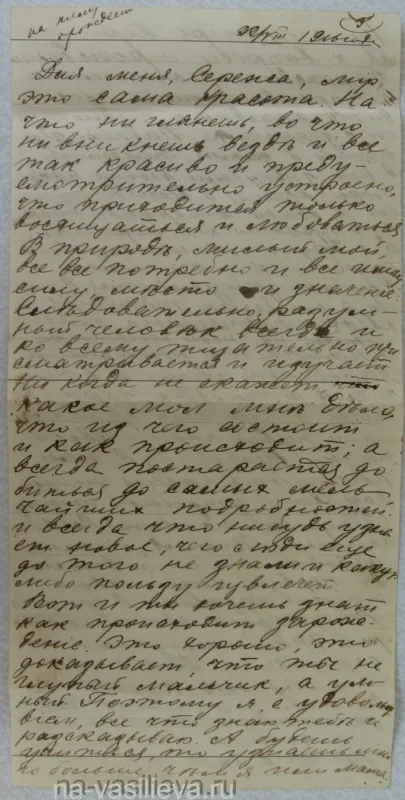 на
Для меня, Сережа, мир,
это сама красота. На
что ни глянешь, во что
ни вникнешь вездѣ и все
так красиво и преду-
смотрительно устроено,
что приходится только
восхищаться и любоваться
В природѣ, милый мой,
все все потребно и все имѣет
силу, мѣсто и значение
Слѣдовательно, разум-
ный человѣк всегда и
ко всему тщательно при
сматривается и изучает
Никогда не скажет что
какое мол мнѣ дѣло,
что из чего состоит
и как происходит; а
всегда постарается до
биться до самых мель
чайших подробностей.
и всегда что нибудь узна
ет новое, чего люди еще
до того не знали и какую
либо пользу извлечет.
Вот и ты хочешь знать
как происходит зарож-
дение. Это хорошо, это
доказывает что ты не
глупый мальчик, а ум
ный. Поэтому я с удоволь
ствием, все что знаю тебѣ и
разсказываю. А будешь
учиться, то узнаешь мно
го больше, чѣм я или мама.
na-vasilieva.ru